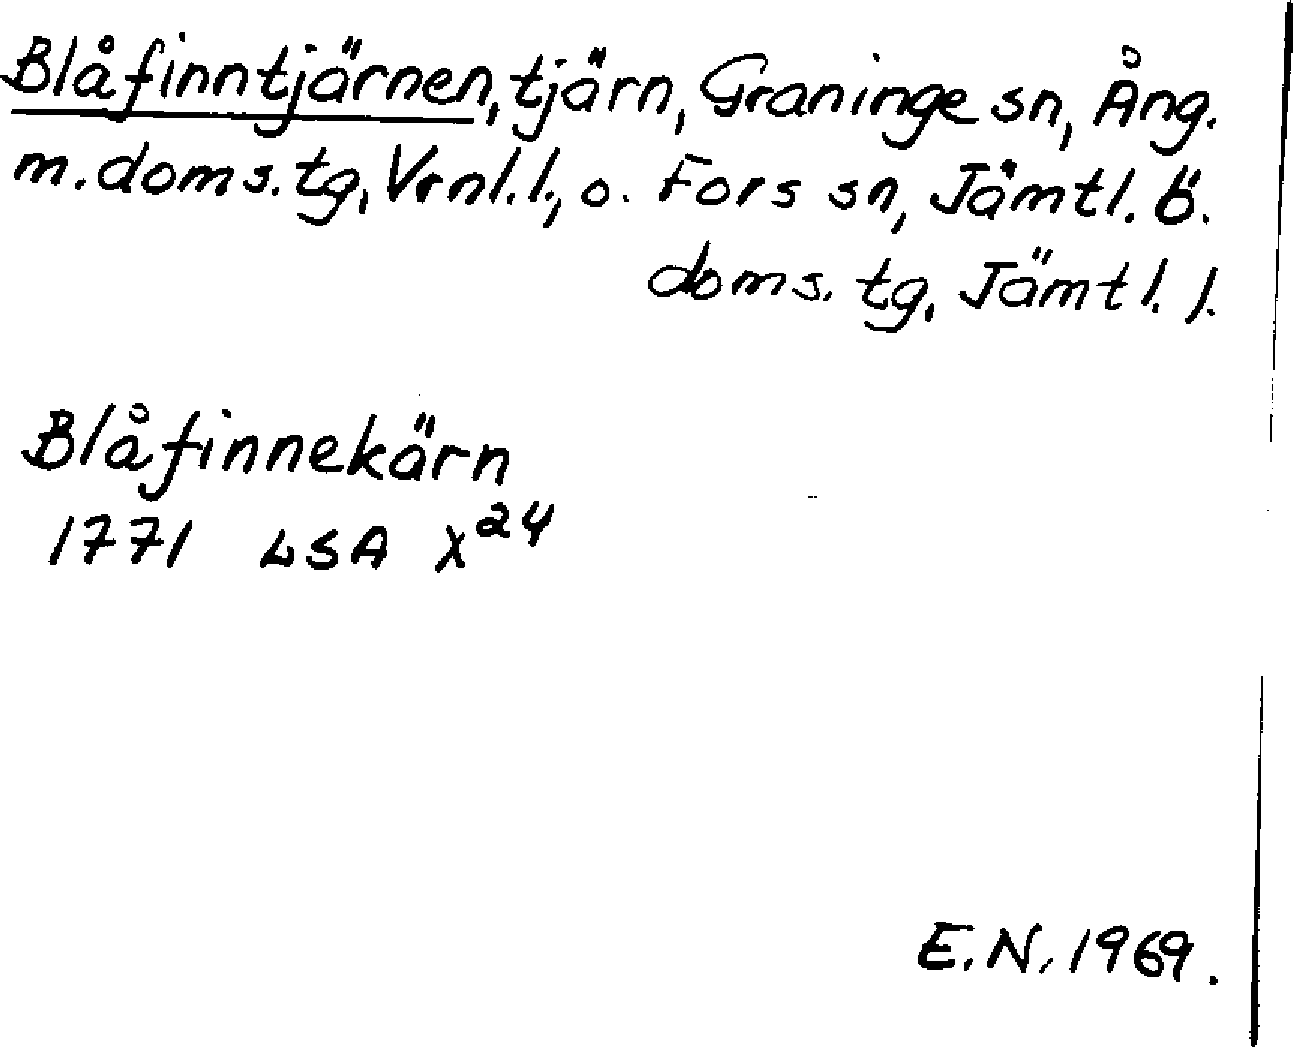 Blåfinntjärnen, tjärn, Graninge sn, Ång.
m. doms. tg, Vrnl. l., o. Fors sn, Jämtl. ö.
doms. tg, Jämtl. l.
Blåfinnekärn
1771 LSA X²⁴
E. N. 1969.